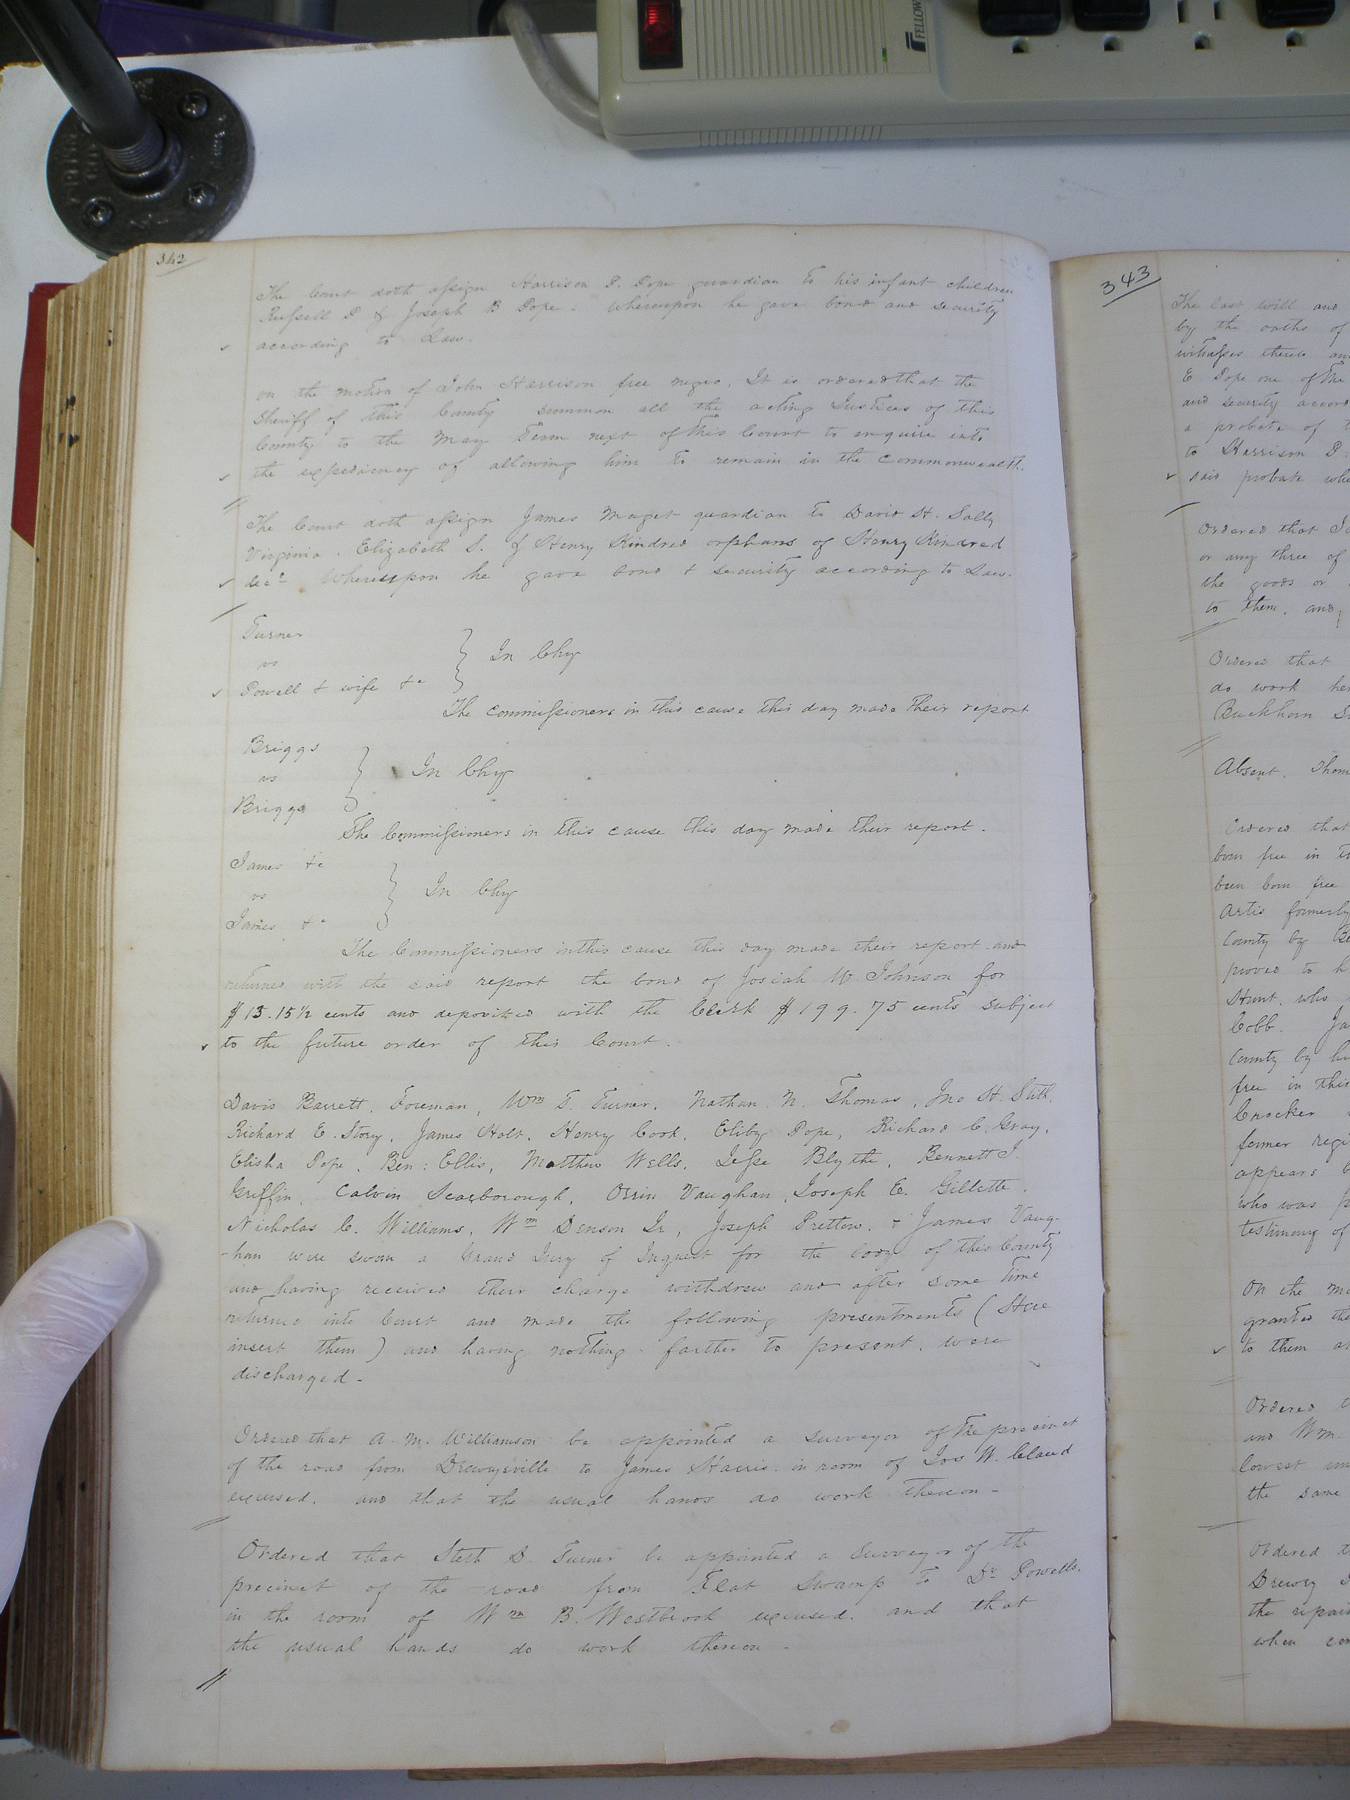 342
The Court doth assign Harrison P. Pope guardian to his infant children
Russell P & Joseph B Pope: whereupon he gave bond and security
according to Law.
on the motion of John Harrison free negro. It is ordered that the
Sheriff of this County summon all the acting Justices of this
County to the May Term next of this Court to enquire into
the expediency of allowing him to remain in the commonwealth.
The Court doth assign James Maget guardian to David H. Sally
Virginia. Elizabeth S. & Henry Kindred orphans of Henry Kindred
decd. Whereupon he gave bond & security according to Law.
Turner
vs
Powell & wife &c
In Chy
The commissioners in this cause this day made their report
Briggs
vs
Briggs
In Chy
The Commissioners in this cause this day made their report.
James &c
vs
James &c
In Chy
The Commissioners in this cause this day made their report and
returned with the said report the bond of Josiah W. Johnson for
$13.15½ cents and deposited with the Clerk $199.75 cents subject
to the future order of this Court.
Davis Barrett, Foreman, Wm T. Turner, Nathan N. Thomas, Jno H. Stith,
Richard E. Story, James Holt, Henry Cook, Pope, Richard C. Gray,
Elisha Pope, Ben: Ellis, Matthew Wells, Jesse Blythe, Bennett J.
Griffin, Calvin Scarborough, Orrin Vaughan, Joseph E. Gillette,
Nicholas C. Williams, Wm Denson Jr, Joseph Pretlow, & James Vaug-
-han were sworn a Grand Jury of Inquest for the body of this County
and having received their charge withdrew and after some time
returned into Court and made the following presentments (Here
insert them) and having nothing farther to present, were
discharged -
Ordered that A. M. Williamson be appointed a surveyor of the precinct
of the road from Drewrysville to James Harris in room of Jos W. Claud
excused, and that the usual hands do work thereon -
Ordered that Stith D. Turner be appointed a Surveyor of the
precinct of the road from Flat Swamp to Dr Powells.
in the room of Wm B. Westbrook excused, and that
the usual hands do work thereon -
343
The last will and
by the oaths of
witnesses thereto
E Pope one of the
and security accord
a probate of
to Harrison P.
said probate
Ordered that
or any three of
the goods or
to them, and
Ordered that
do work
Buckhorn
Absent. Thom
Ordered that
born free in
been born free
Artis formerly
County by
proved to
Hunt, who
Cobb.
County by
free in this
Crocker
former
appears
who was
testimony of
On the
granted
to them
Ordered
and Wm.
lowest
the same
Ordered
Drewry
the repair
when
FELLOW